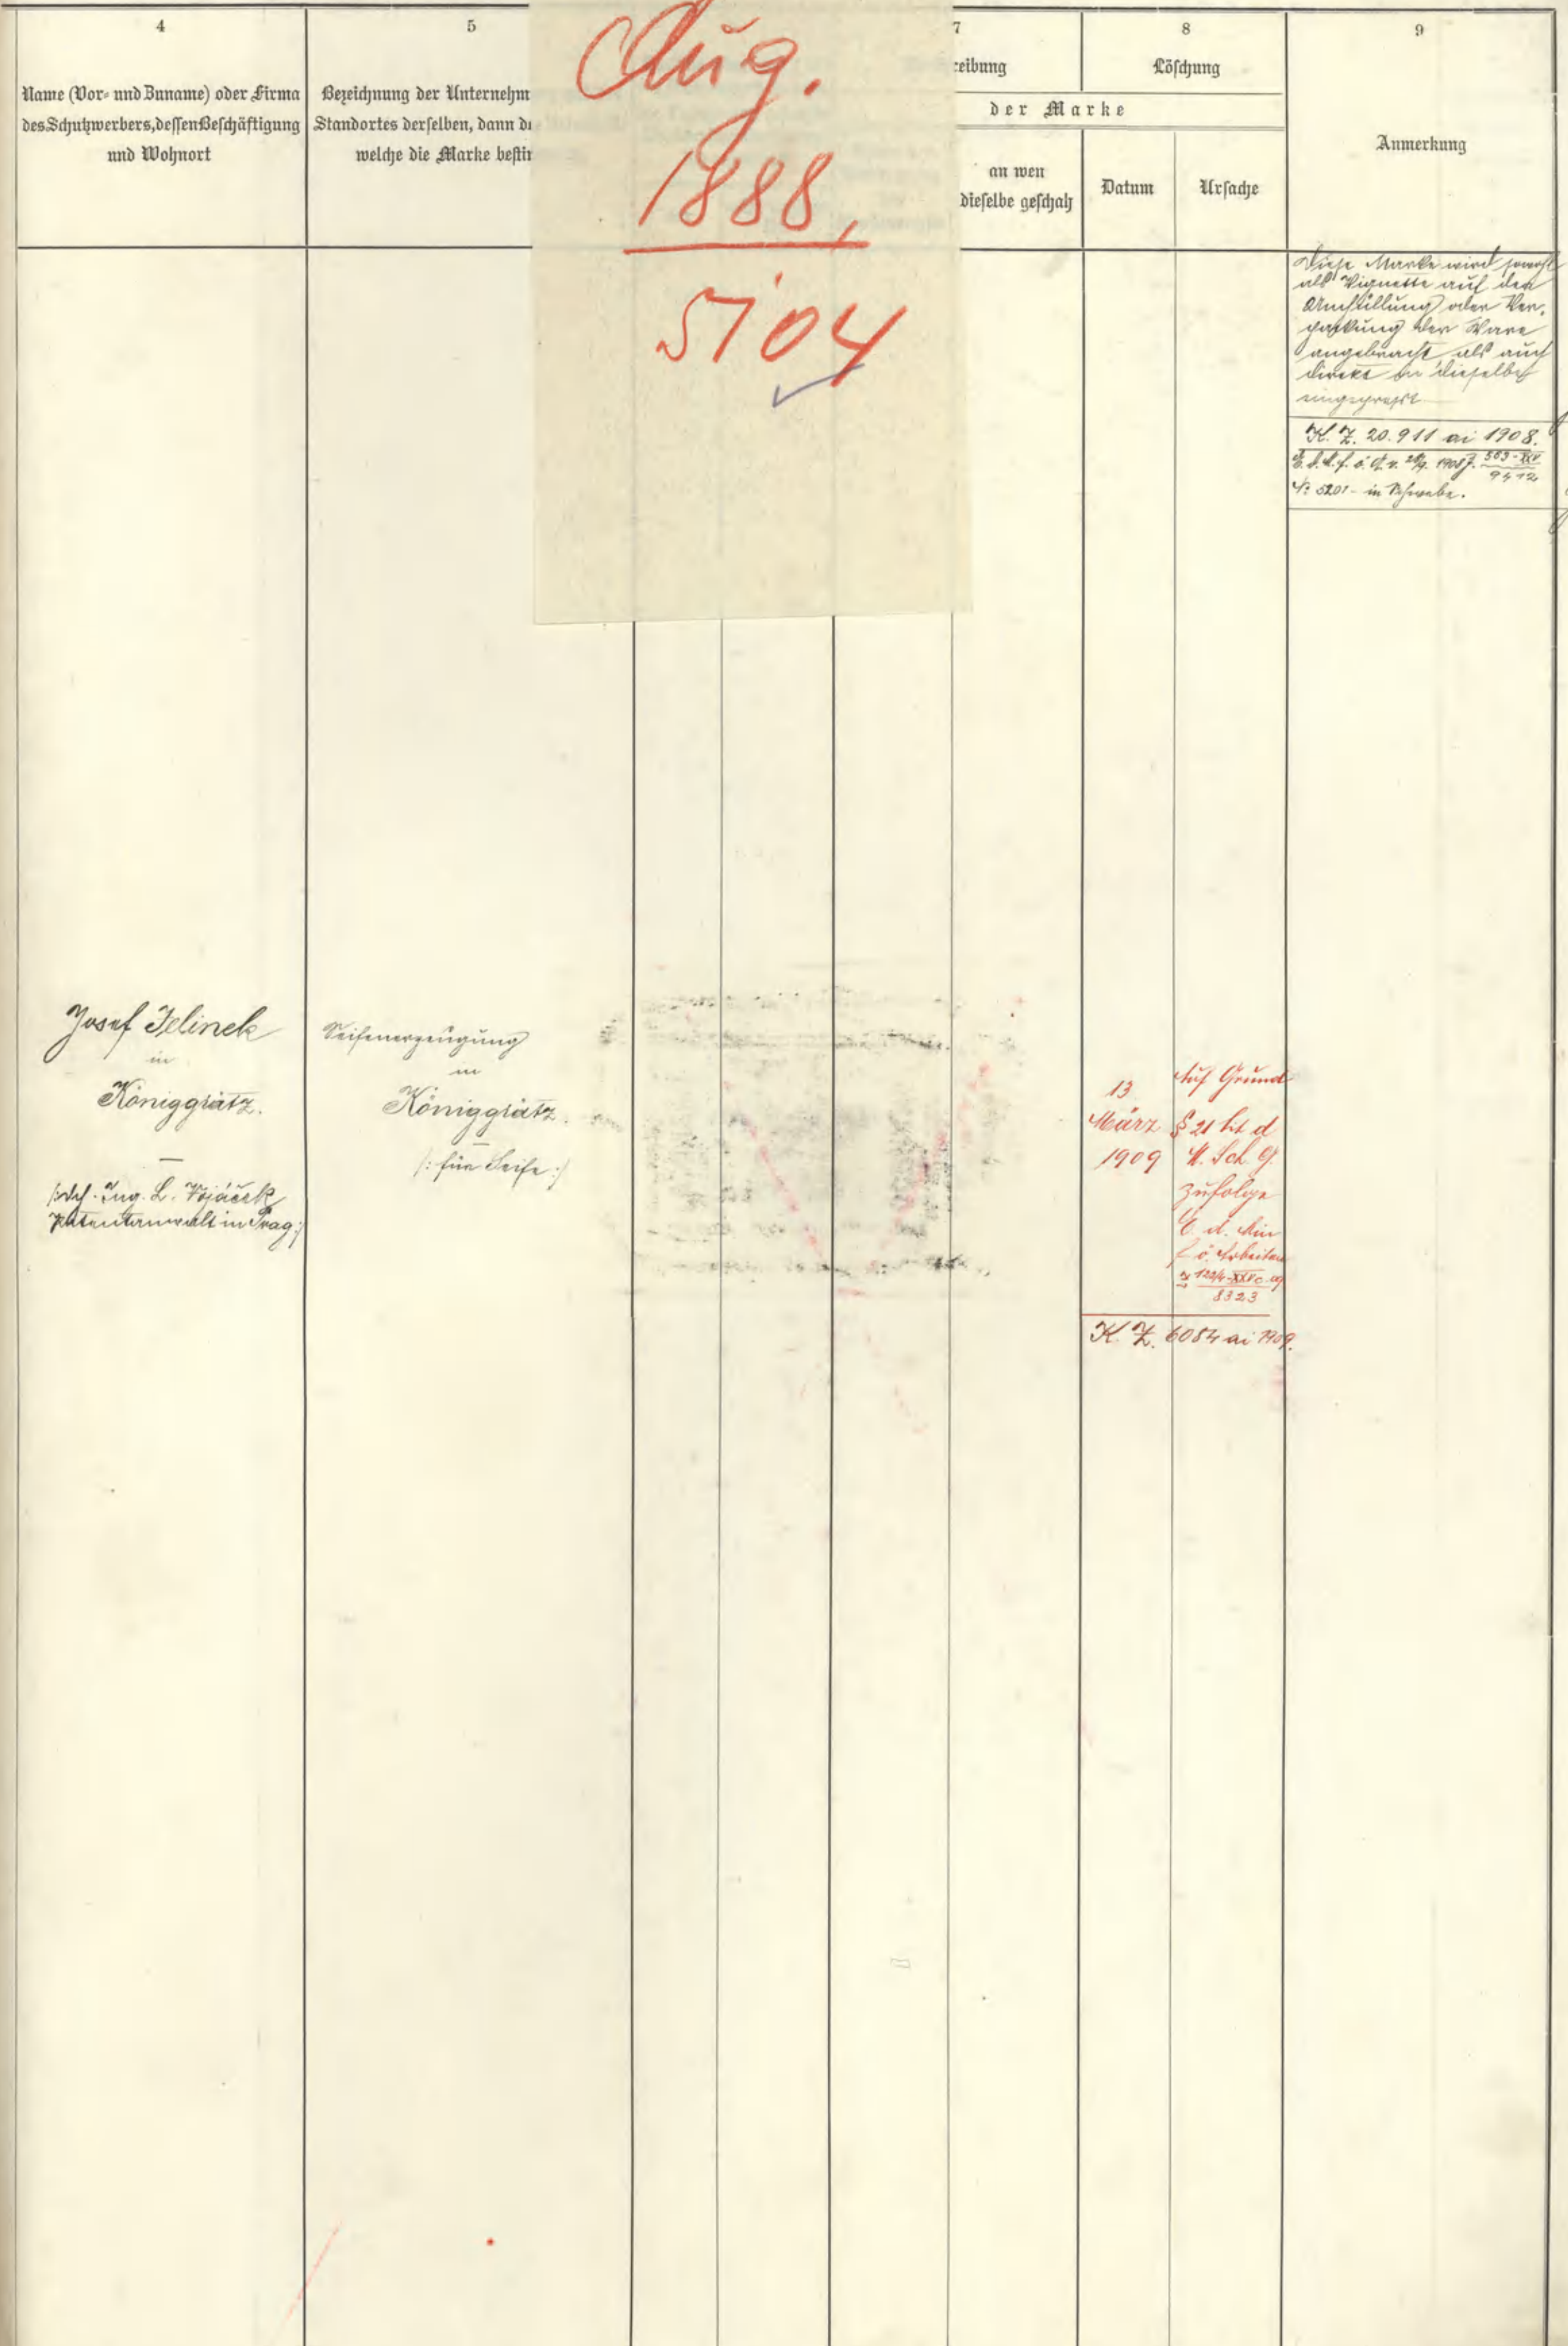 4
Name (Vor- und Zuname) oder Firma
des Schutzwerbers, dessen Beschäftigung
und Wohnort
5
Bezeichnung der Unternehm
Standortes derselben, dann d
welche die Marke bestim
Aug.
1888,
5104
7
reibung
8
Löschung
der Marke
an wen
dieselbe geschah
Datum
Ursache
9
Anmerkung
Diese Marke wird sowohl
als Vignette auf der
Umhüllung oder Ver-
packung der Ware
angebracht, als auch
direkt in dieselbe
eingepresst
K. Z. 20.911 ai 1908.
E. d. M. f. ö. A. v. 1908 Z. 563-XXV
9412
№ 5201 - in Schwebe.
Josef Jelinek
in
Königgrätz.
—
/: Ing. L. Vojáček
Patentanwalt in Prag :/
Seifenerzeugung
in
Königgrätz.
—
/: für Seife :/
13
März
1909
Auf Grund
§ 21 lit d
M. Sch G.
zufolge
E. d. Min
f. ö. Arbeiten
8323
K. Z. 6084 ai 1909.